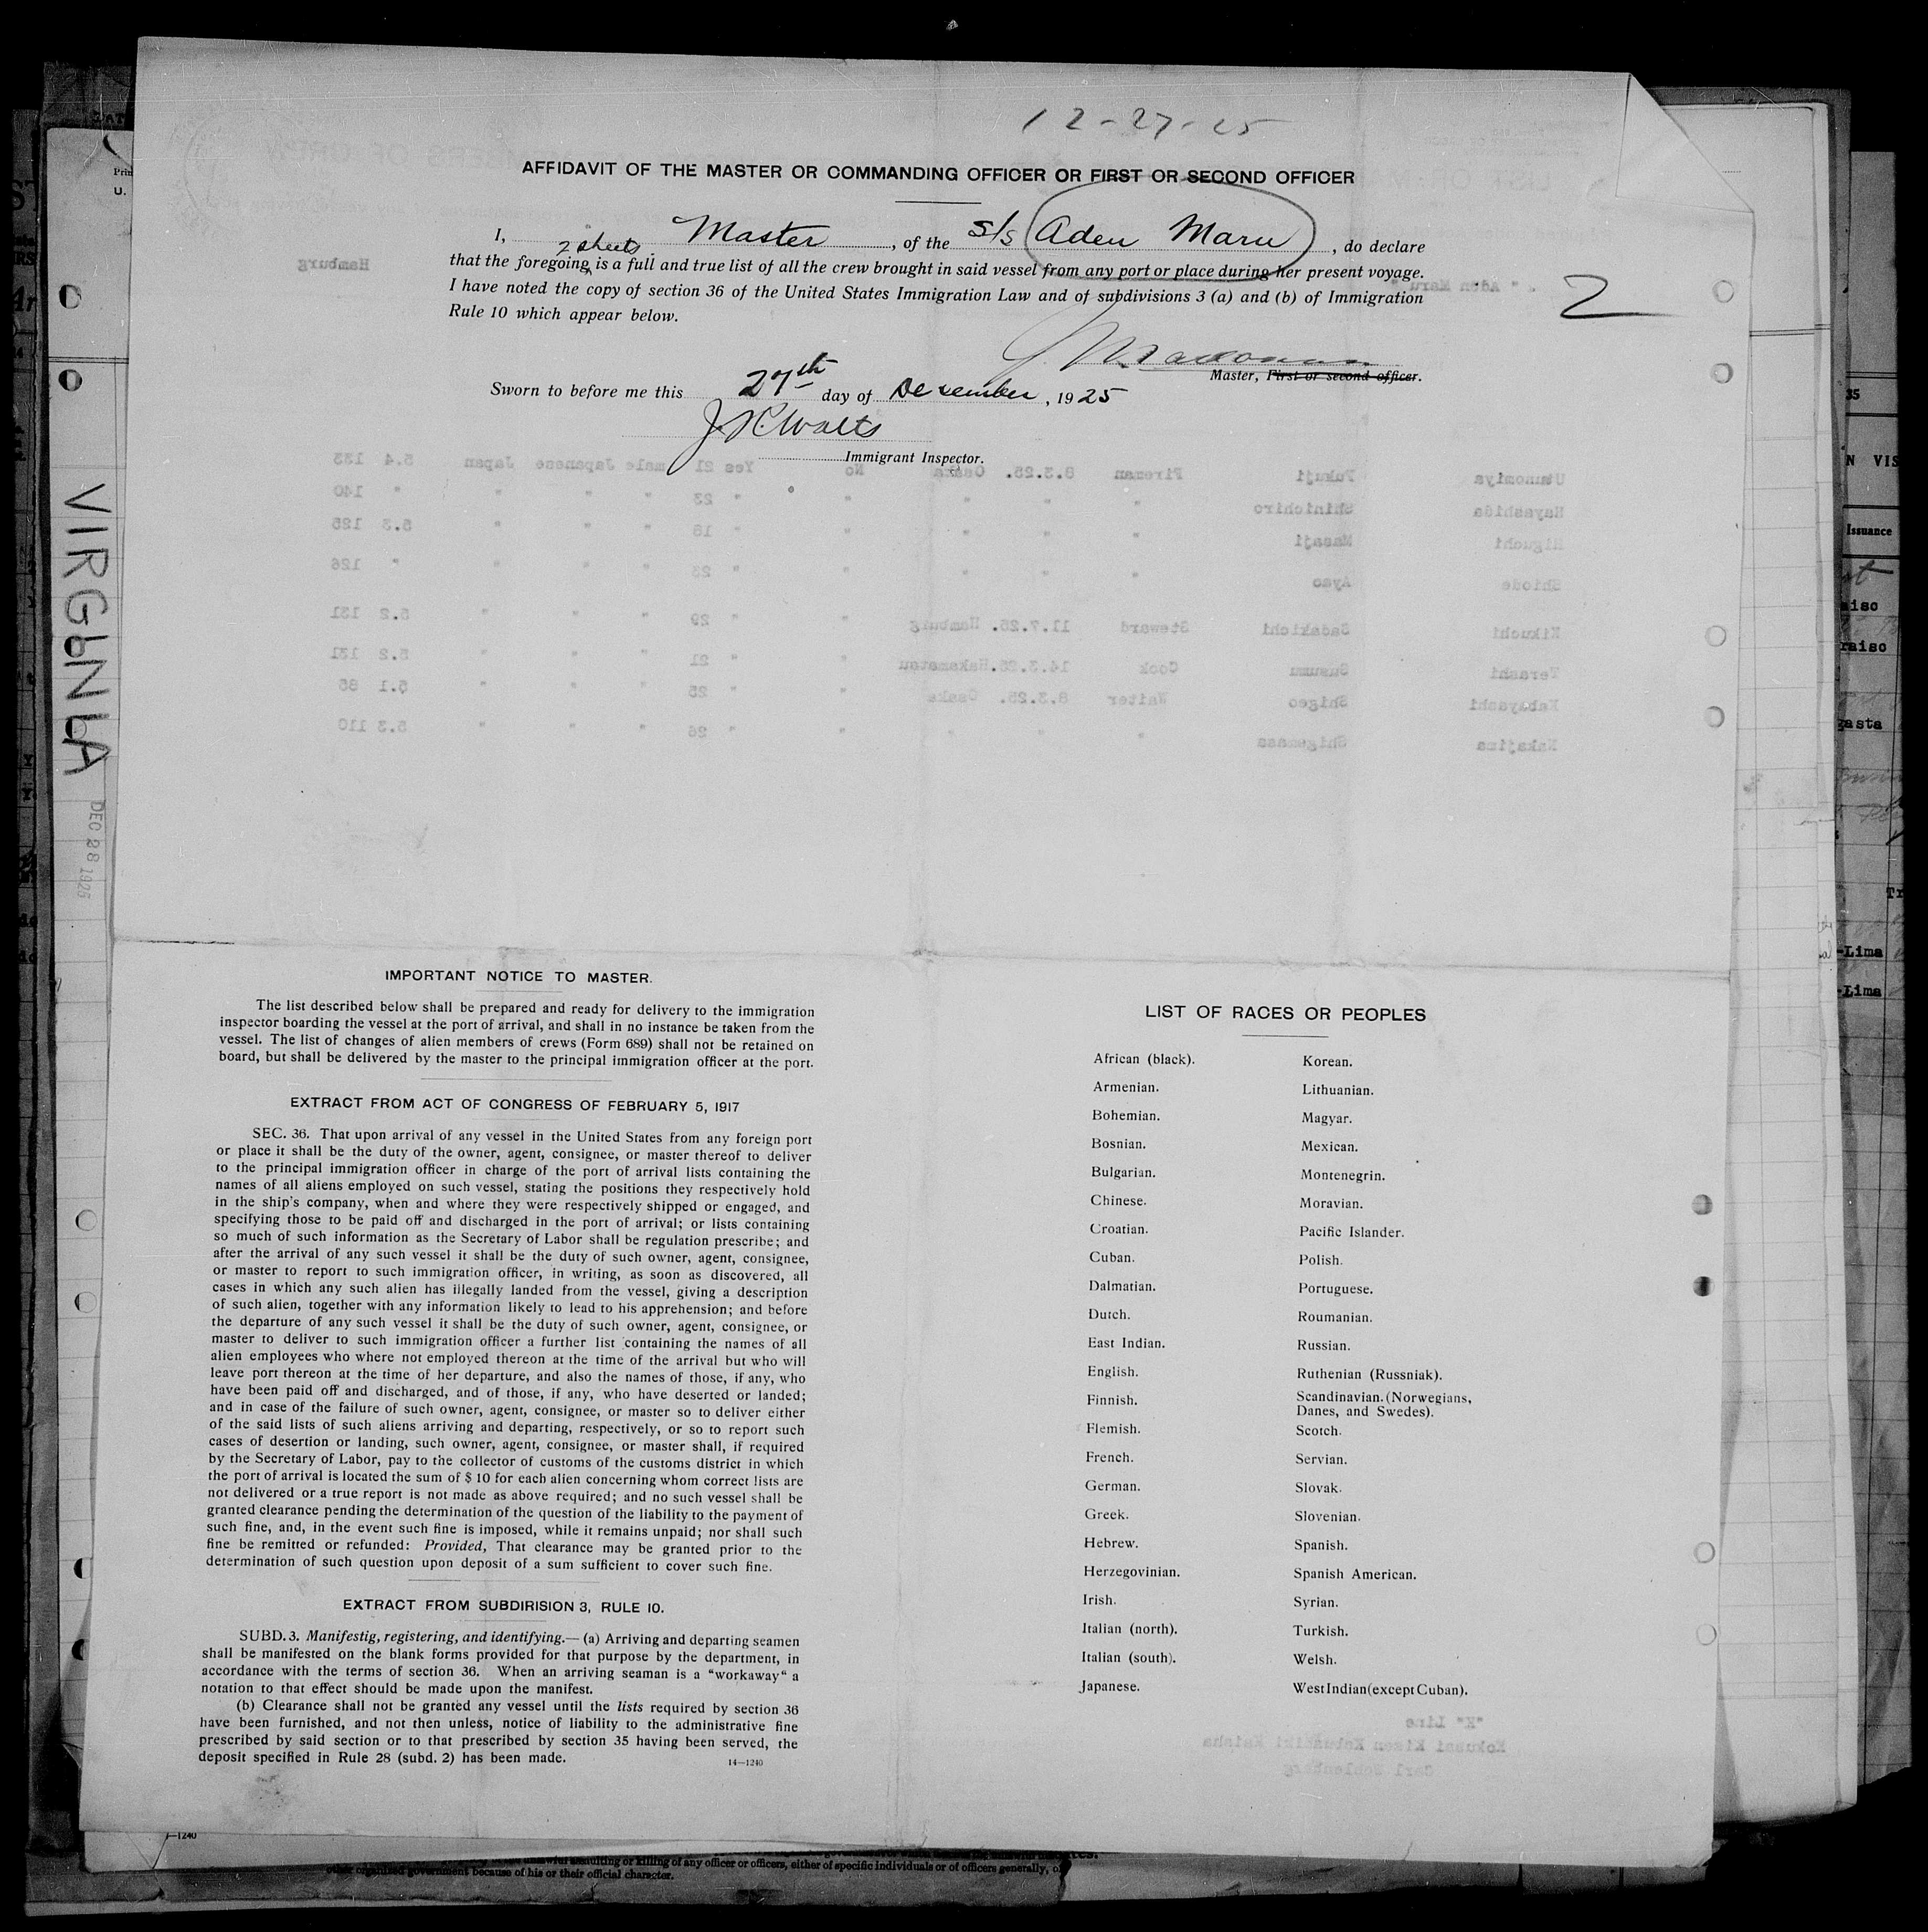 12-27-25
AFFIDAVIT OF THE MASTER OR COMMANDING OFFICER OR FIRST OR SECOND OFFICER
I, Master, of the S/S Aden Maru, do declare
2 sheets
that the foregoing is a full and true list of all the crew brought in said vessel from any port or place during her present voyage.
I have noted the copy of section 36 of the United States Immigration Law and of subdivisions 3 (a) and (b) of Immigration
Rule 10 which appear below.
2
Master, First or second officer.
Sworn to before me this 27th day of Desember, 1925
Immigrant Inspector.
Hamburg
"Aden Maru"
Utsunomiya Fukuji Fireman 8.3.25. Osaka No Yes 21 male Japanese Japan 5.4 133
Hayashida Shinichiro " " " " " 23 " " " " 140
Higuchi Masaji " " " " " 18 " " " 5.3 125
Shiode Ayao " " " " " 23 " " " " 126
Kikuchi Sadakichi Steward 11.7.25. Hamburg " " 29 " " " 5.2 131
Terashi Susumu Cook 14.3.25. " " 21 " " " 5.2 131
Shigeo Waiter 8.3.25. Osaka " " 25 " " " 5.1
Nakajima Shigemasa " " " " " 26 " " " 5.3 110
VIRGINIA
DEC 28 1925
IMPORTANT NOTICE TO MASTER.
The list described below shall be prepared and ready for delivery to the immigration
inspector boarding the vessel at the port of arrival, and shall in no instance be taken from the
vessel. The list of changes of alien members of crews (Form 689) shall not be retained on
board, but shall be delivered by the master to the principal immigration officer at the port.
EXTRACT FROM ACT OF CONGRESS OF FEBRUARY 5, 1917
SEC. 36. That upon arrival of any vessel in the United States from any foreign port
or place it shall be the duty of the owner, agent, consignee, or master thereof to deliver
to the principal immigration officer in charge of the port of arrival lists containing the
names of all aliens employed on such vessel, stating the positions they respectively hold
in the ship's company, when and where they were respectively shipped or engaged, and
specifying those to be paid off and discharged in the port of arrival; or lists containing
so much of such information as the Secretary of Labor shall be regulation prescribe; and
after the arrival of any such vessel it shall be the duty of such owner, agent, consignee,
or master to report to such immigration officer, in writing, as soon as discovered, all
cases in which any such alien has illegally landed from the vessel, giving a description
of such alien, together with any information likely to lead to his apprehension; and before
the departure of any such vessel it shall be the duty of such owner, agent, consignee, or
master to deliver to such immigration officer a further list containing the names of all
alien employees who where not employed thereon at the time of the arrival but who will
leave port thereon at the time of her departure, and also the names of those, if any, who
have been paid off and discharged, and of those, if any, who have deserted or landed;
and in case of the failure of such owner, agent, consignee, or master so to deliver either
of the said lists of such aliens arriving and departing, respectively, or so to report such
cases of desertion or landing, such owner, agent, consignee, or master shall, if required
by the Secretary of Labor, pay to the collector of customs of the customs district in which
the port of arrival is located the sum of $ 10 for each alien concerning whom correct lists are
not delivered or a true report is not made as above required; and no such vessel shall be
granted clearance pending the determination of the question of the liability to the payment of
such fine, and, in the event such fine is imposed, while it remains unpaid; nor shall such
fine be remitted or refunded: Provided, That clearance may be granted prior to the
determination of such question upon deposit of a sum sufficient to cover such fine.
EXTRACT FROM SUBDIRISION 3, RULE 10.
SUBD. 3. Manifestig, registering, and identifying.— (a) Arriving and departing seamen
shall be manifested on the blank forms provided for that purpose by the department, in
accordance with the terms of section 36. When an arriving seaman is a "workaway" a
notation to that effect should be made upon the manifest.
(b) Clearance shall not be granted any vessel until the lists required by section 36
have been furnished, and not then unless, notice of liability to the administrative fine
prescribed by said section or to that prescribed by section 35 having been served, the
deposit specified in Rule 28 (subd. 2) has been made.
14—1240
LIST OF RACES OR PEOPLES
African (black). Korean.
Armenian. Lithuanian.
Bohemian. Magyar.
Bosnian. Mexican.
Bulgarian. Montenegrin.
Chinese. Moravian.
Croatian. Pacific Islander.
Cuban. Polish.
Dalmatian. Portuguese.
Dutch. Roumanian.
East Indian. Russian.
English. Ruthenian (Russniak).
Finnish. Scandinavian. (Norwegians,
Danes, and Swedes).
Flemish. Scotch.
French. Servian.
German. Slovak.
Greek. Slovenian.
Hebrew. Spanish.
Herzegovinian. Spanish American.
Irish. Syrian.
Italian (north). Turkish.
Italian (south). Welsh.
Japanese. West Indian (except Cuban).
"K" Line
Kokusai Kisen Kabushiki Kaisha
Carl
other organized government because of his or their official character.